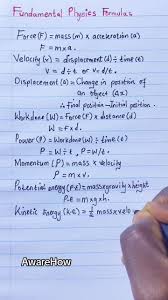 Fundamental Physics Formulas
Force (F) = mass (m) x acceleration (a)
F = m x a.
Velocity (v) = displacement (d) ÷ time (t)
V = d ÷ t or V = d/t.
Displacement (d) = Change in position of
an object (Δx)
= final position - initial position.
Workdone (W) = Force (F) x distance (d)
W = F x d.
Power (P) = Workdone (W) ÷ time (t)
P = W ÷ t, P = W/t.
Momentum (P) = mass x velocity
P = m x v.
Potential energy (P.E) = mass x gravity x height
P.E = m x g x h.
Kinetic Energy (K.E) = ½ mass x velo
AwareHow